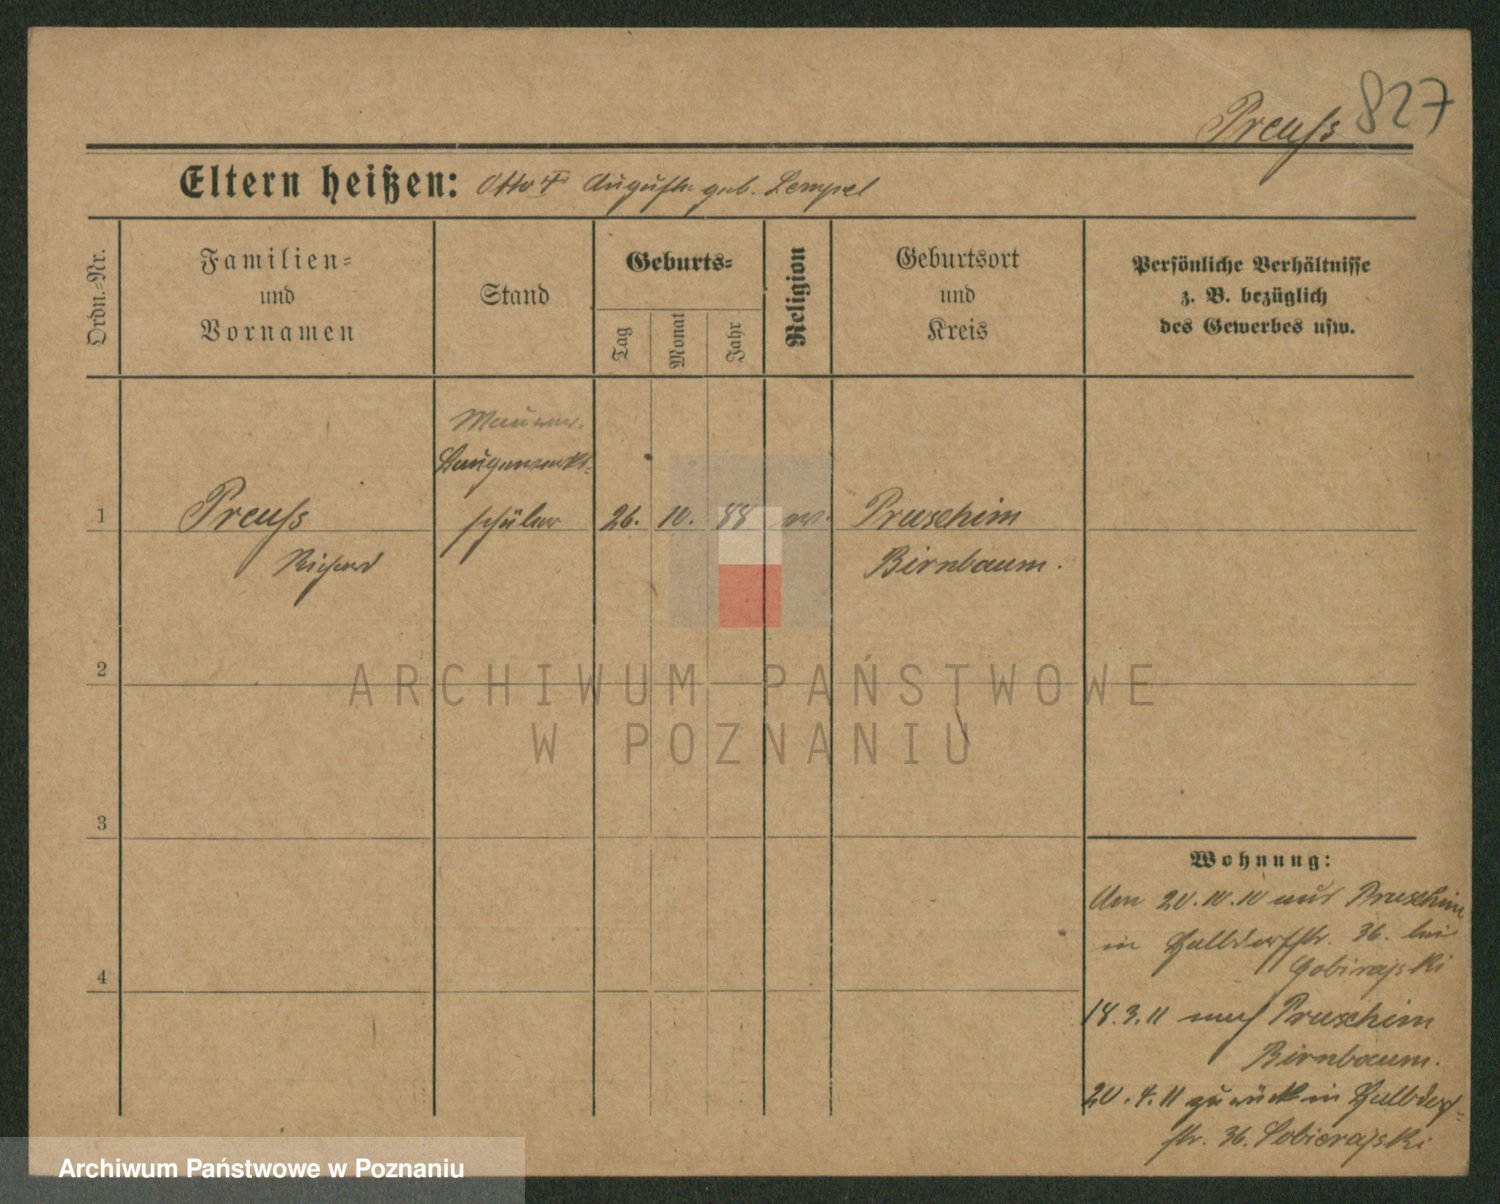 827
Preuss
Eltern heißen: Otto † Auguste geb. Lempel
Ordn.-Nr.
Familien-
und
Vornamen
Stand
Geburts-
Tag
Monat
Jahr
Religion
Geburtsort
und
Kreis
Persönliche Verhältnisse
z. B. bezüglich
des Gewerbes usw.
Maurer.
Baugewerks-
1
Preuss
schüler
26.
10.
88
ev.
Pruschim
Richard
Birnbaum.
2
ARCHIWUM PAŃSTWOWE
W POZNANIU
3
Wohnung:
Am 20.10.10 aus Pruschim
in Halbdorfstr. 36. bei
Sobirajski
4
18.3.11 nach Pruschim
Birnbaum.
20.4.11 zurück in Halbdorf-
str. 36. Sobierajski
Archiwum Państwowe w Poznaniu